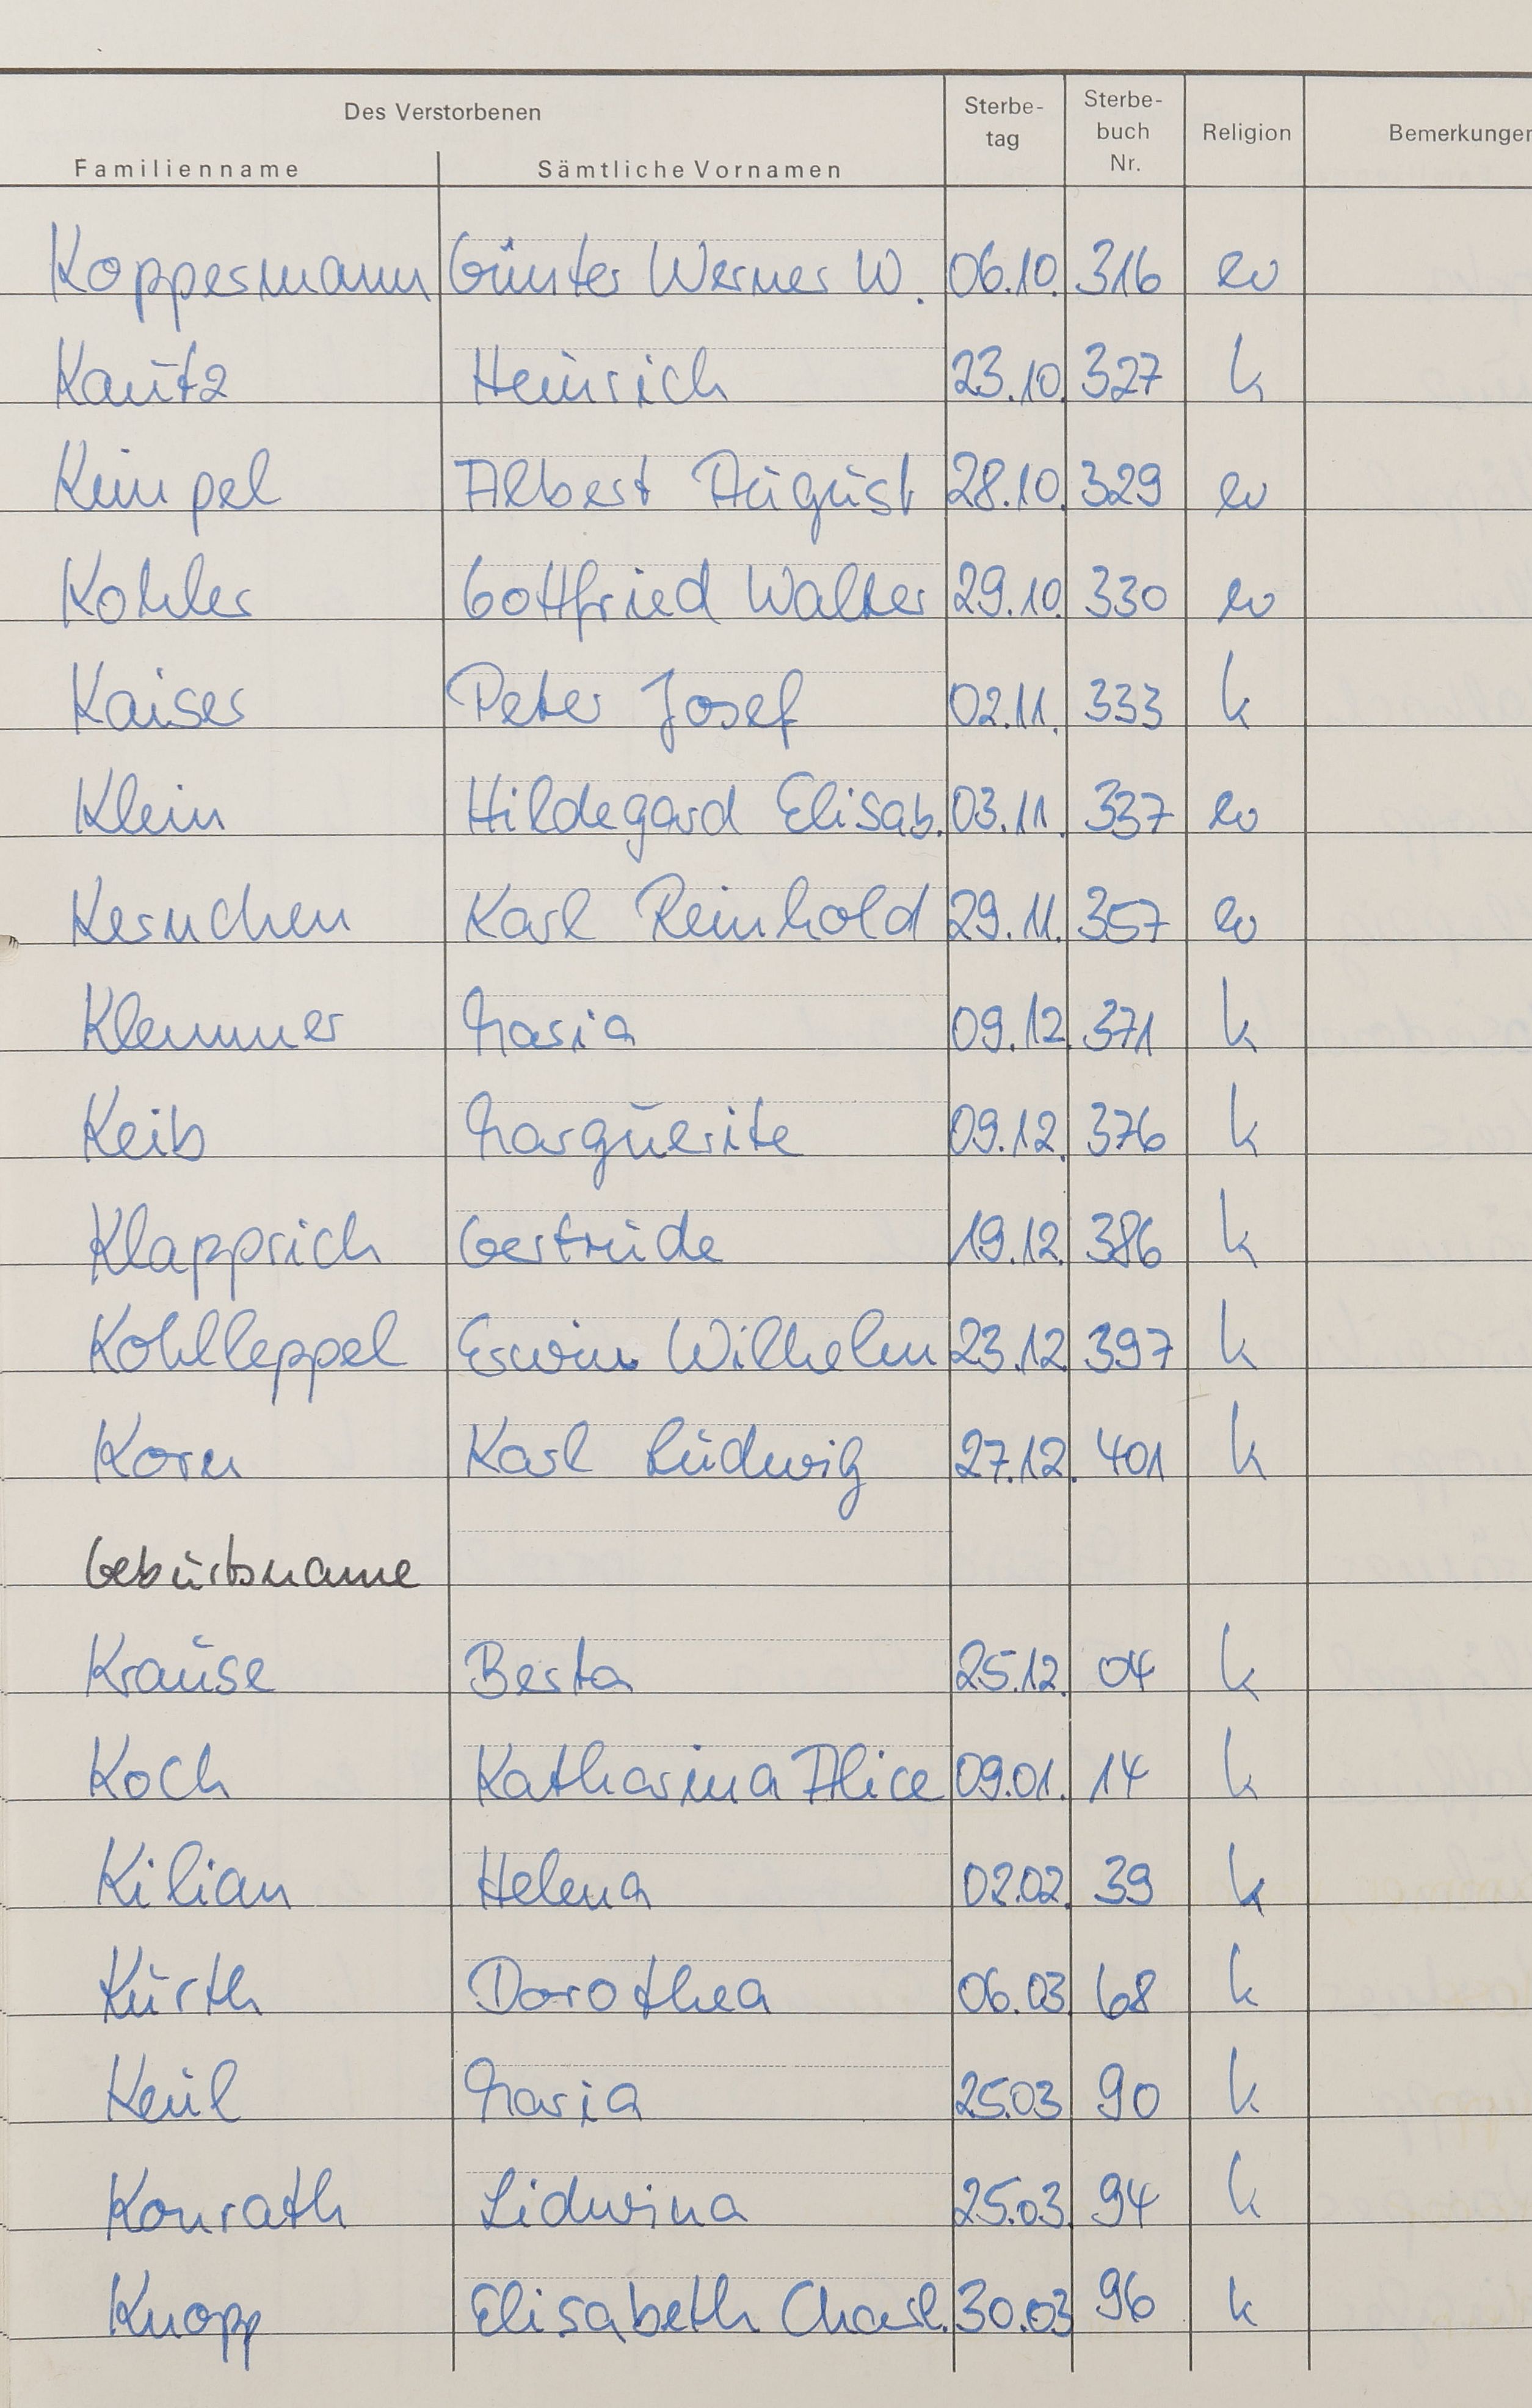 Des Verstorbenen
Familienname Sämtliche Vornamen Sterbe-tag Sterbe-buch Nr. Religion Bemerkungen
Koppermann Günter Werner W. 06.10. 316 ev
Kautz Heinrich 23.10. 327 k
Keimpel Albert August 28.10. 329 ev
Kohler Gottfried Walter 29.10. 330 ev
Kaiser Peter Josef 02.11. 333 k
Klein Hildegard Elisab. 03.11. 337 ev
Kernchen Karl Reinhold 29.11. 357 ev
Klemmer Maria 09.12. 371 k
Keib Marguerite 09.12. 376 k
Klapprich Gertrude 19.12. 386 k
Kohlleppel Erwin Wilhelm 23.12. 397 k
Korn Karl Ludwig 27.12. 401 k
Geburtsname
Krause Berta 25.12. 04 k
Koch Katharina Alice 09.01. 14 k
Kilian Helena 02.02. 39 k
Kurth Dorothea 06.03. 68 k
Keul Maria 25.03 90 k
Konrath Lidwina 25.03. 94 k
Knopp Elisabeth Charl. 30.03 96 k